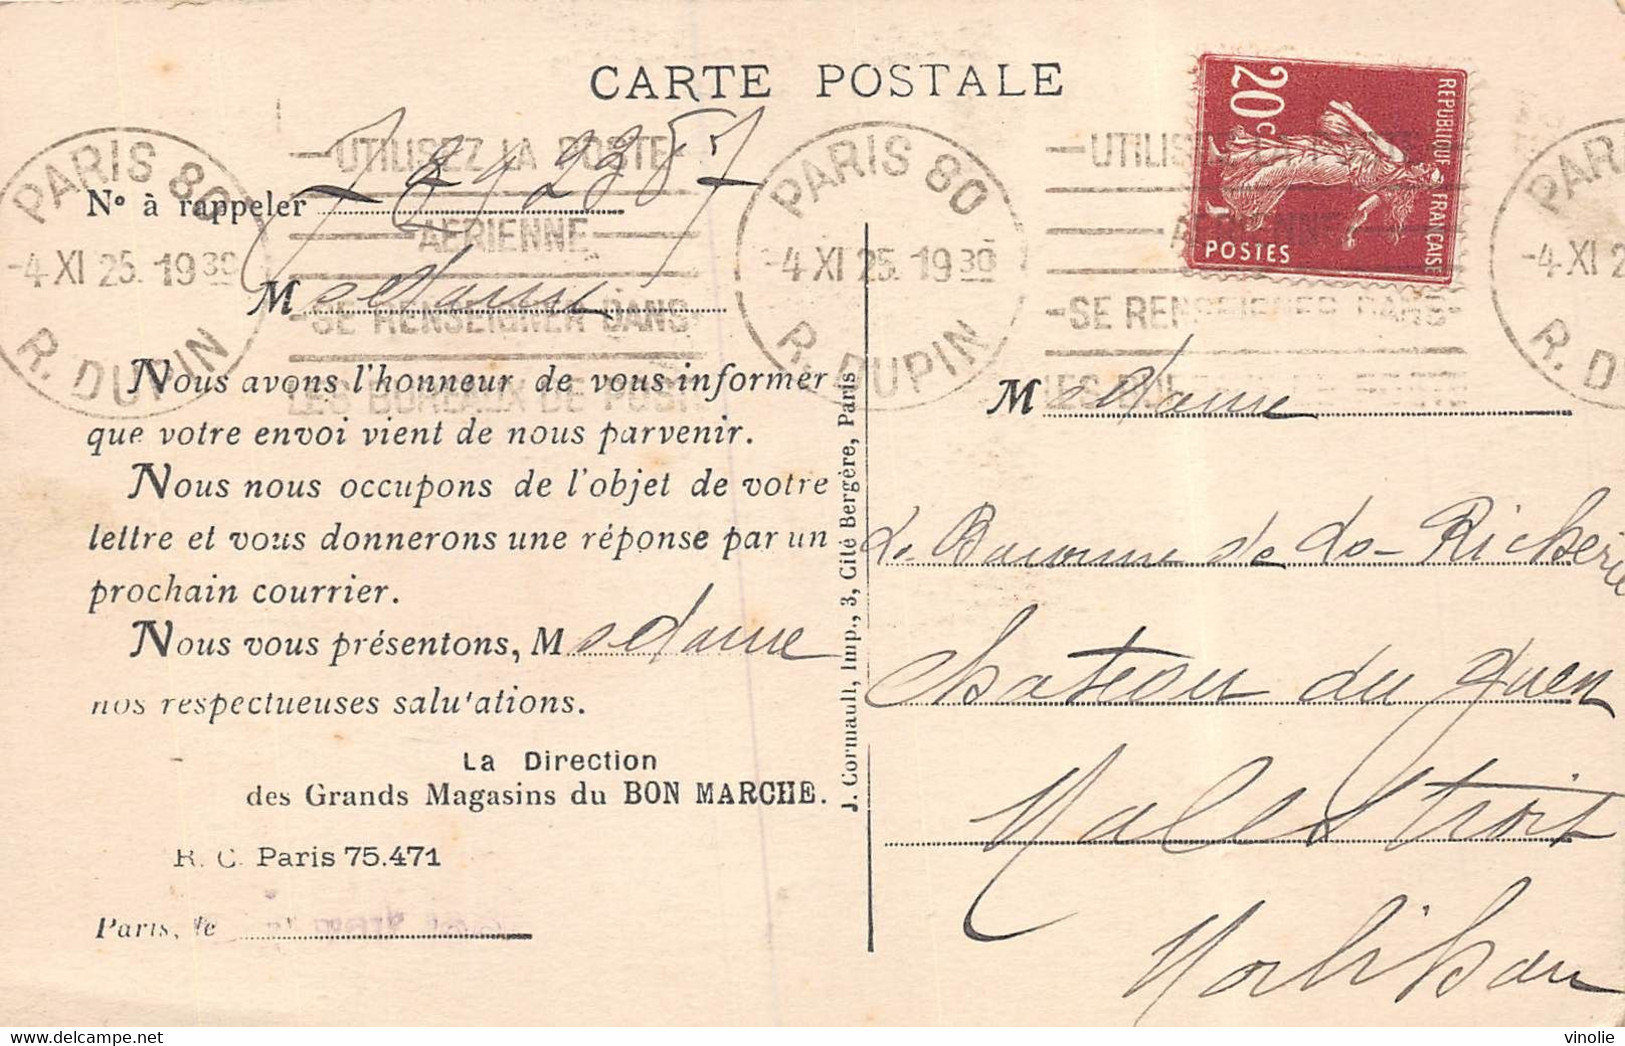 CARTE POSTALE
PARIS 80
-4 XI 25. 19 30
R. DUPIN
UTILISEZ LA POSTE
AERIENNE
SE RENSEIGNER DANS
LES BUREAUX DE POSTE
PARIS 80
-4 XI 25. 19 30
R. DUPIN
20c
REPUBLIQUE FRANÇAISE
POSTES
N° à rappeler
Madame
Nous avons l'honneur de vous informer
que votre envoi vient de nous parvenir.
Nous nous occupons de l'objet de votre
lettre et vous donnerons une réponse par un
prochain courrier.
Nous vous présentons, Madame
nos respectueuses salu'ations.
La Direction
des Grands Magasins du BON MARCHE.
R. C. Paris 75.471
Paris, le
J. Cormault, Imp., 3, Cité Bergère, Paris
Madame
La Baronne de La Richerie
Chateau du Guen
Malestroit
Morbihan
vinolie